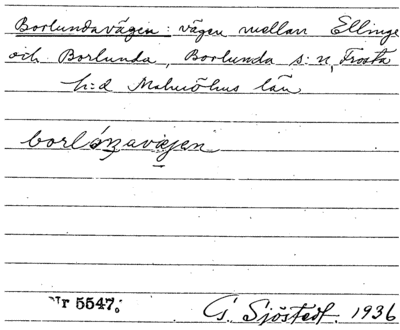 Borlundavägen: vägen mellan Ellinge
och Borlunda, Borlunda s:n, Frosta
h:d Malmöhus län
Nr 5547.
G. Sjöstedt. 1936